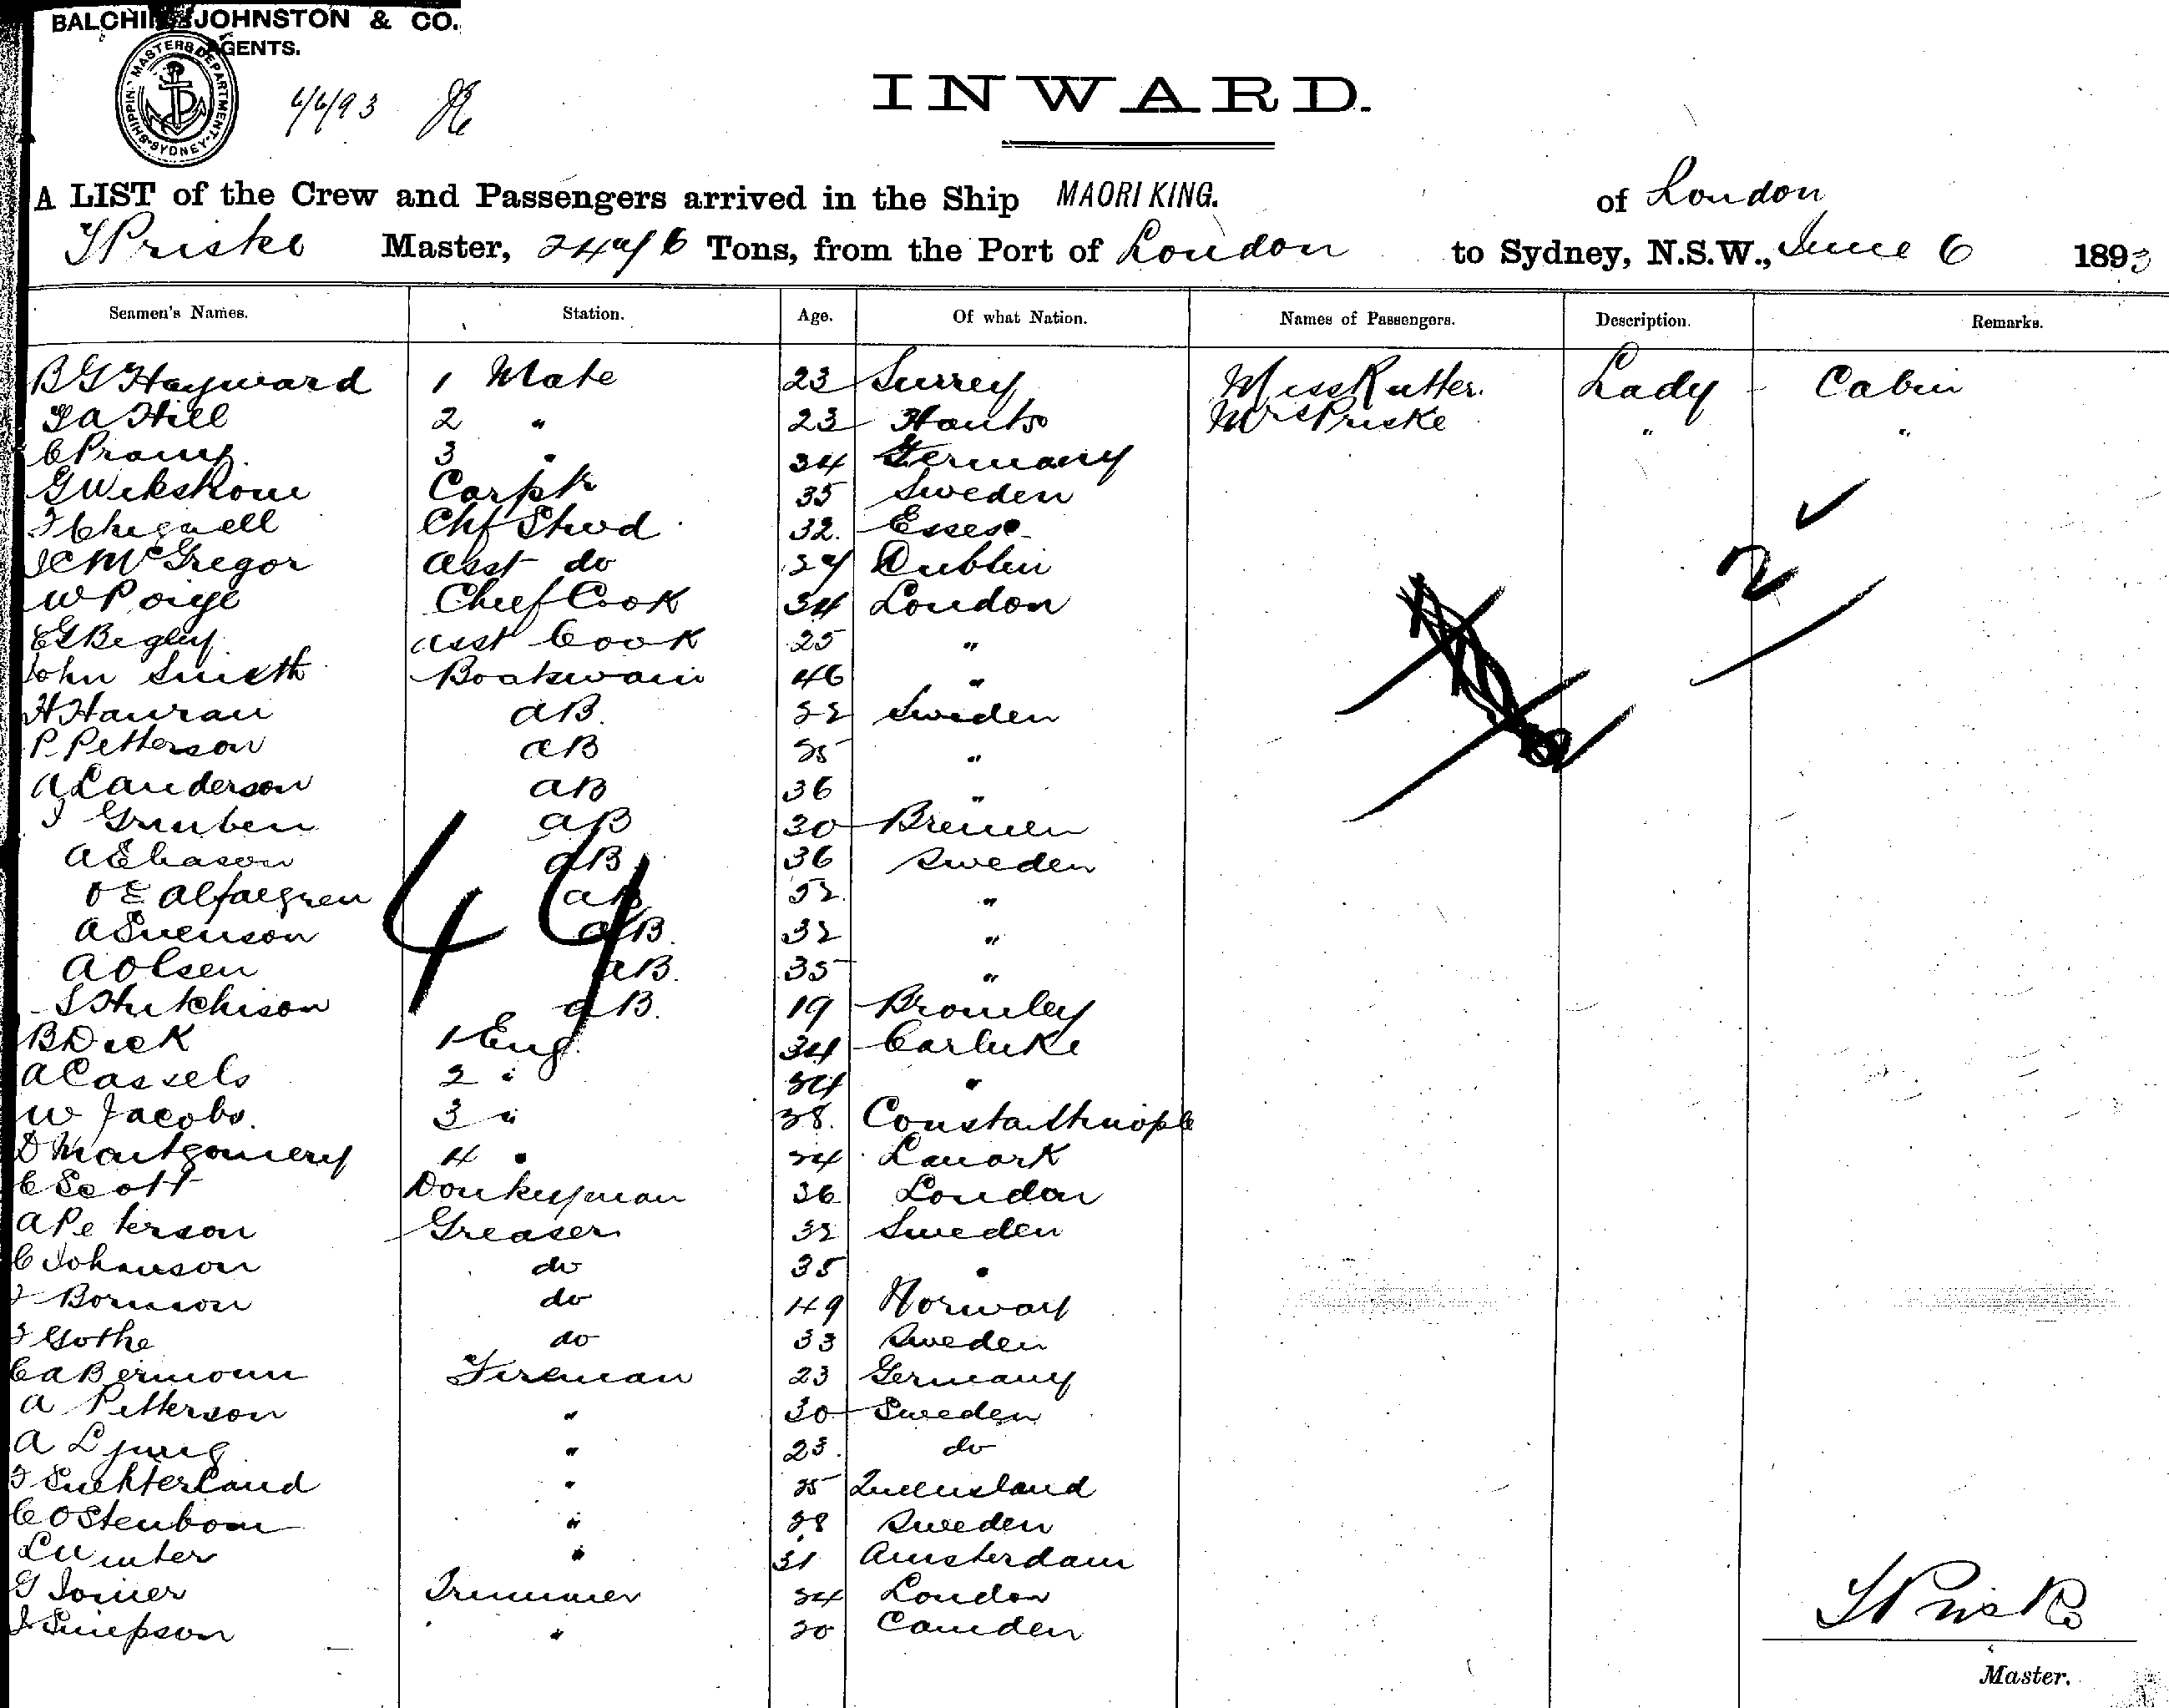 BALCHIN JOHNSTON & CO.
AGENTS.
SHIPPING MASTERS DEPARTMENT SYDNEY
6/6/93
INWARD.
A LIST of the Crew and Passengers arrived in the Ship MAORI KING. of London
Priske Master, Tons, from the Port of London to Sydney, N.S.W., June 6 1893
Seamen's Names. Station. Age. Of what Nation. Names of Passengers. Description. Remarks.
B G Hayward 1 Mate 23 Surrey Miss Rutter. Lady Cabin
Hill 2 " 23 Hants Mrs Priske " "
C 3 " 34 Germany
G Wekstrom Carptr 35 Sweden
Chignell Chf Stwd 32. Essex
McGregor asst do Dublin
W Paige Chief Cook 34 London
Begley asst Cook 25 "
John Smith Boatswain 46 "
H Hanran AB. Sweden
P. Petterson AB "
A Landerson AB 36 "
Gruuben AB 30 Bremen
A Eliason AB 36 Sweden
O E Alfaegren AB "
A Svenson AB. 32 "
A Olsen AB. 35 "
S Hutchison AB. 19 Bromley
44
B Dick 1 Eng. 34 Carluke
A Cassels 2 " "
W Jacobs. 3 " 38. Constantinople
D Montgomery 4 " Lanark
C Scott Donkeyman 36 London
A Peterson Greaser 32 Sweden
C Johanson do 35 "
Bornson do 49 Norway
Gothe do 33 Sweden
C A Bermoun Fireman 23 Germany
A Petterson " 30 Sweden
A Ljung " 23. do
Suhterland " Queensland
C Ostenbom " Sweden
L Winter " 31 Amsterdam
G Joiner Trimmer London
J Simpson " Camden
Priske
Master.
2